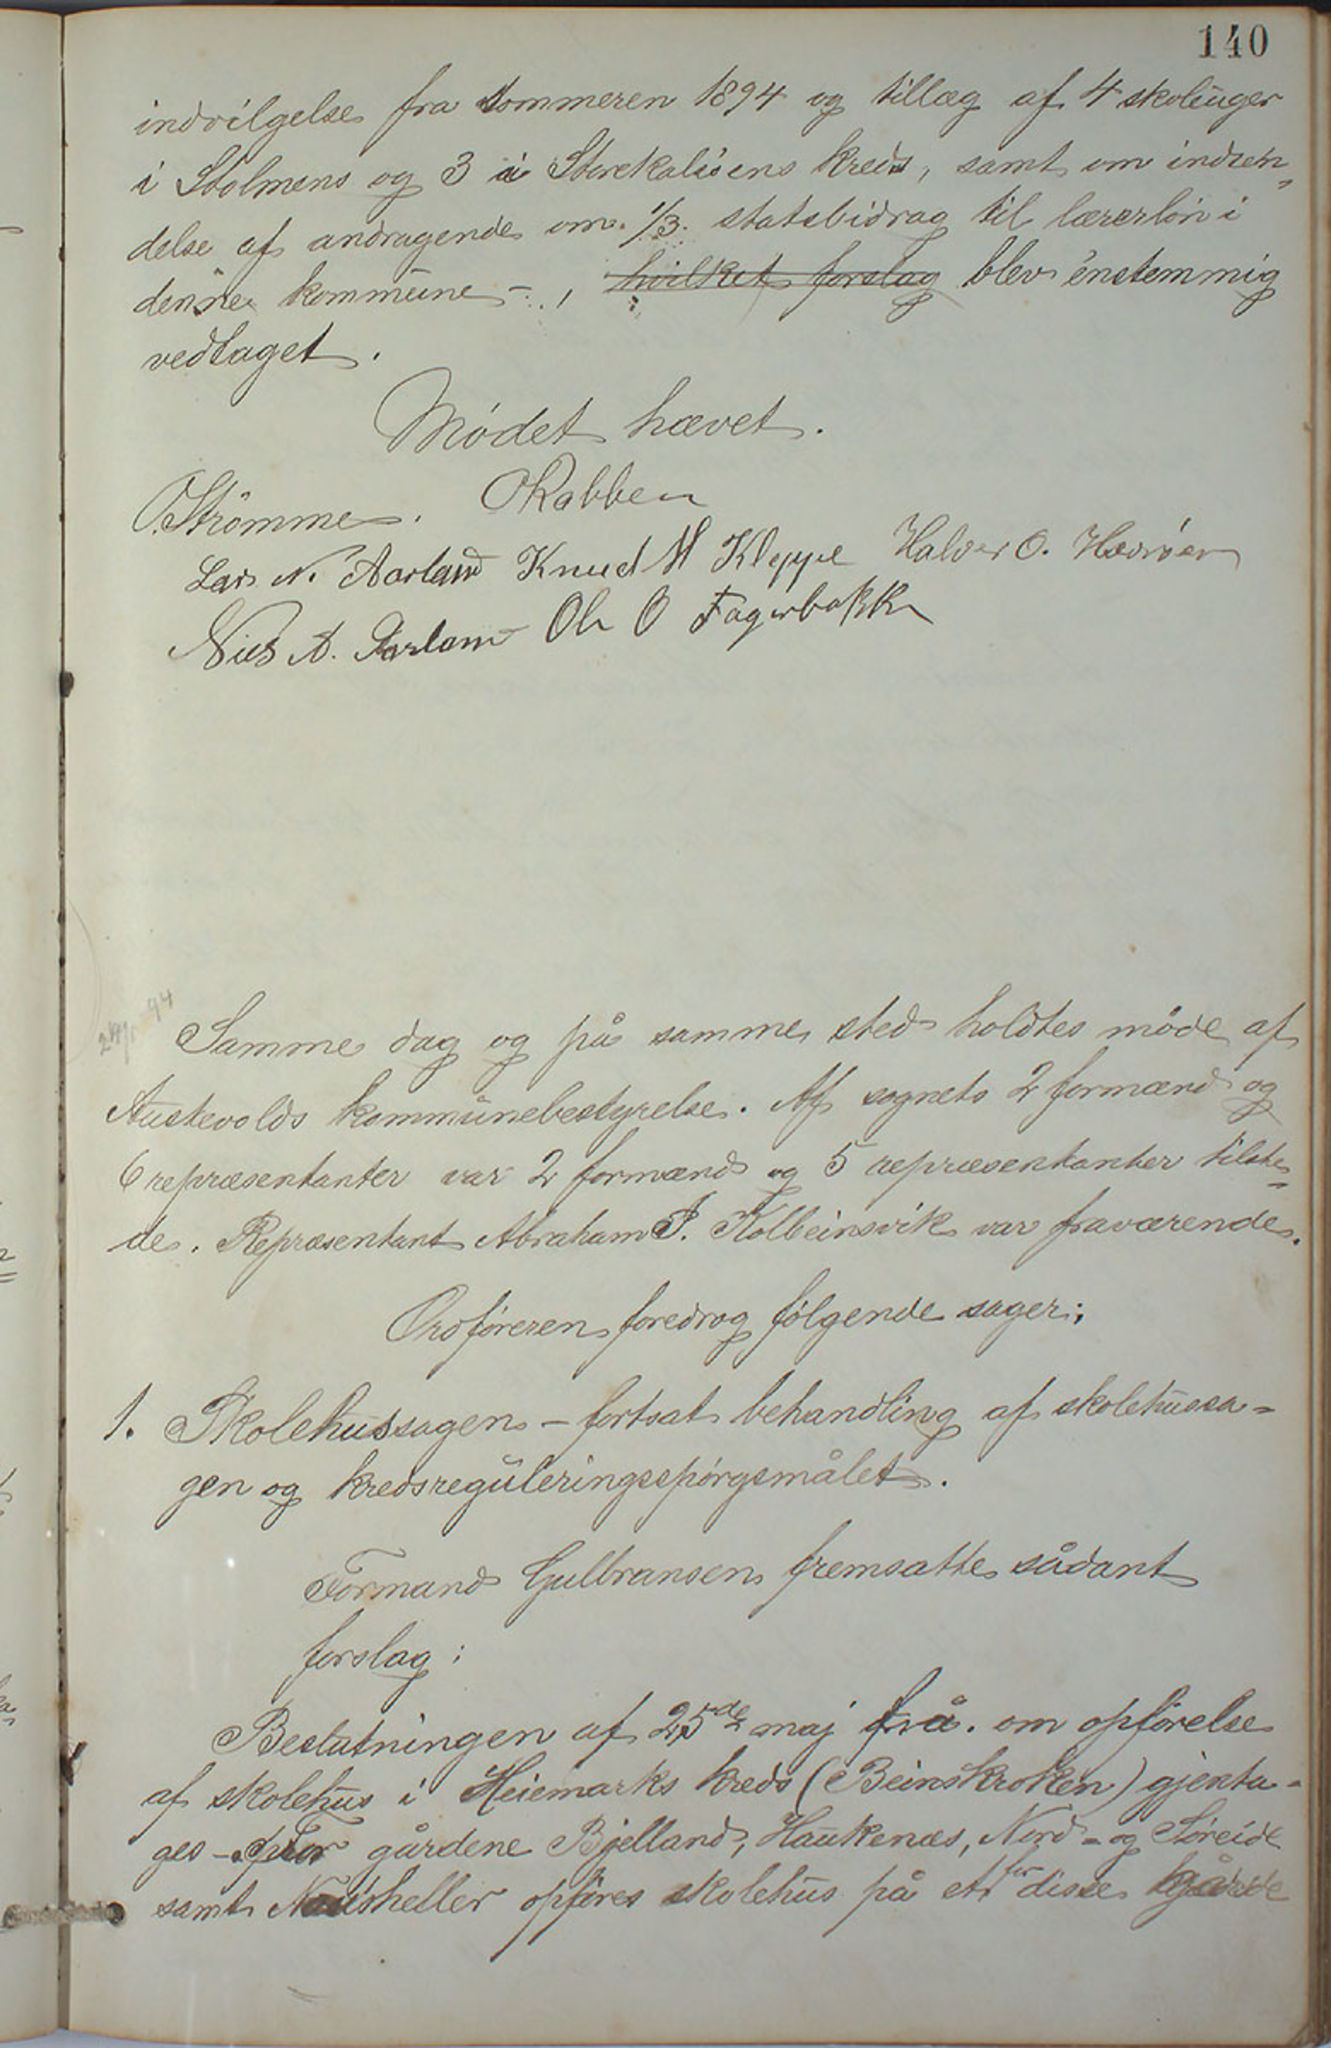 140
indvilgelse fra sommeren 1894 og tillæg af 4 skoleuger
i Stolmens og 3 i Storekalsöens kreds, samt om indsen-
delse af andragende om 1/3 statsbidrag til lærerlön i
denne kommune -, hvilket forslag blev énstemmig
vedtaget.
Mödet hævet.
O. Strömme. O Rabben
Lars N. Aarland Knud H Kleppe Halvor O. Hevröen
Nils A. Aarland Ole O Fagerbakke
24/1 94
Samme dag og på samme sted holdtes möde af
Austevolds kommunebestyrelse. Af sognets 2 formænd og
6 repræsentanter var 2 formænd og 5 repræsentanter tilste-
de. Repræsentant Abraham P. Kolbeinsvik var fraværende.
Ordföreren foredrog fölgende sager:
1. Skolehussagen - fortsat behandling af skolehussa-
gen og kredsreguleringsspörgsmålet.
Formand Gulbransen fremsatte sådant
forslag:
Beslutningen af 25de maj f. å. om opförelse
af skolehus i Heiemarks kreds (Beinskroken) gjenta-
ges - For gårdene Bjelland, Haukenæs, Nord- og Söreide
samt Naustheller opföres skolehus på et for disse gårde